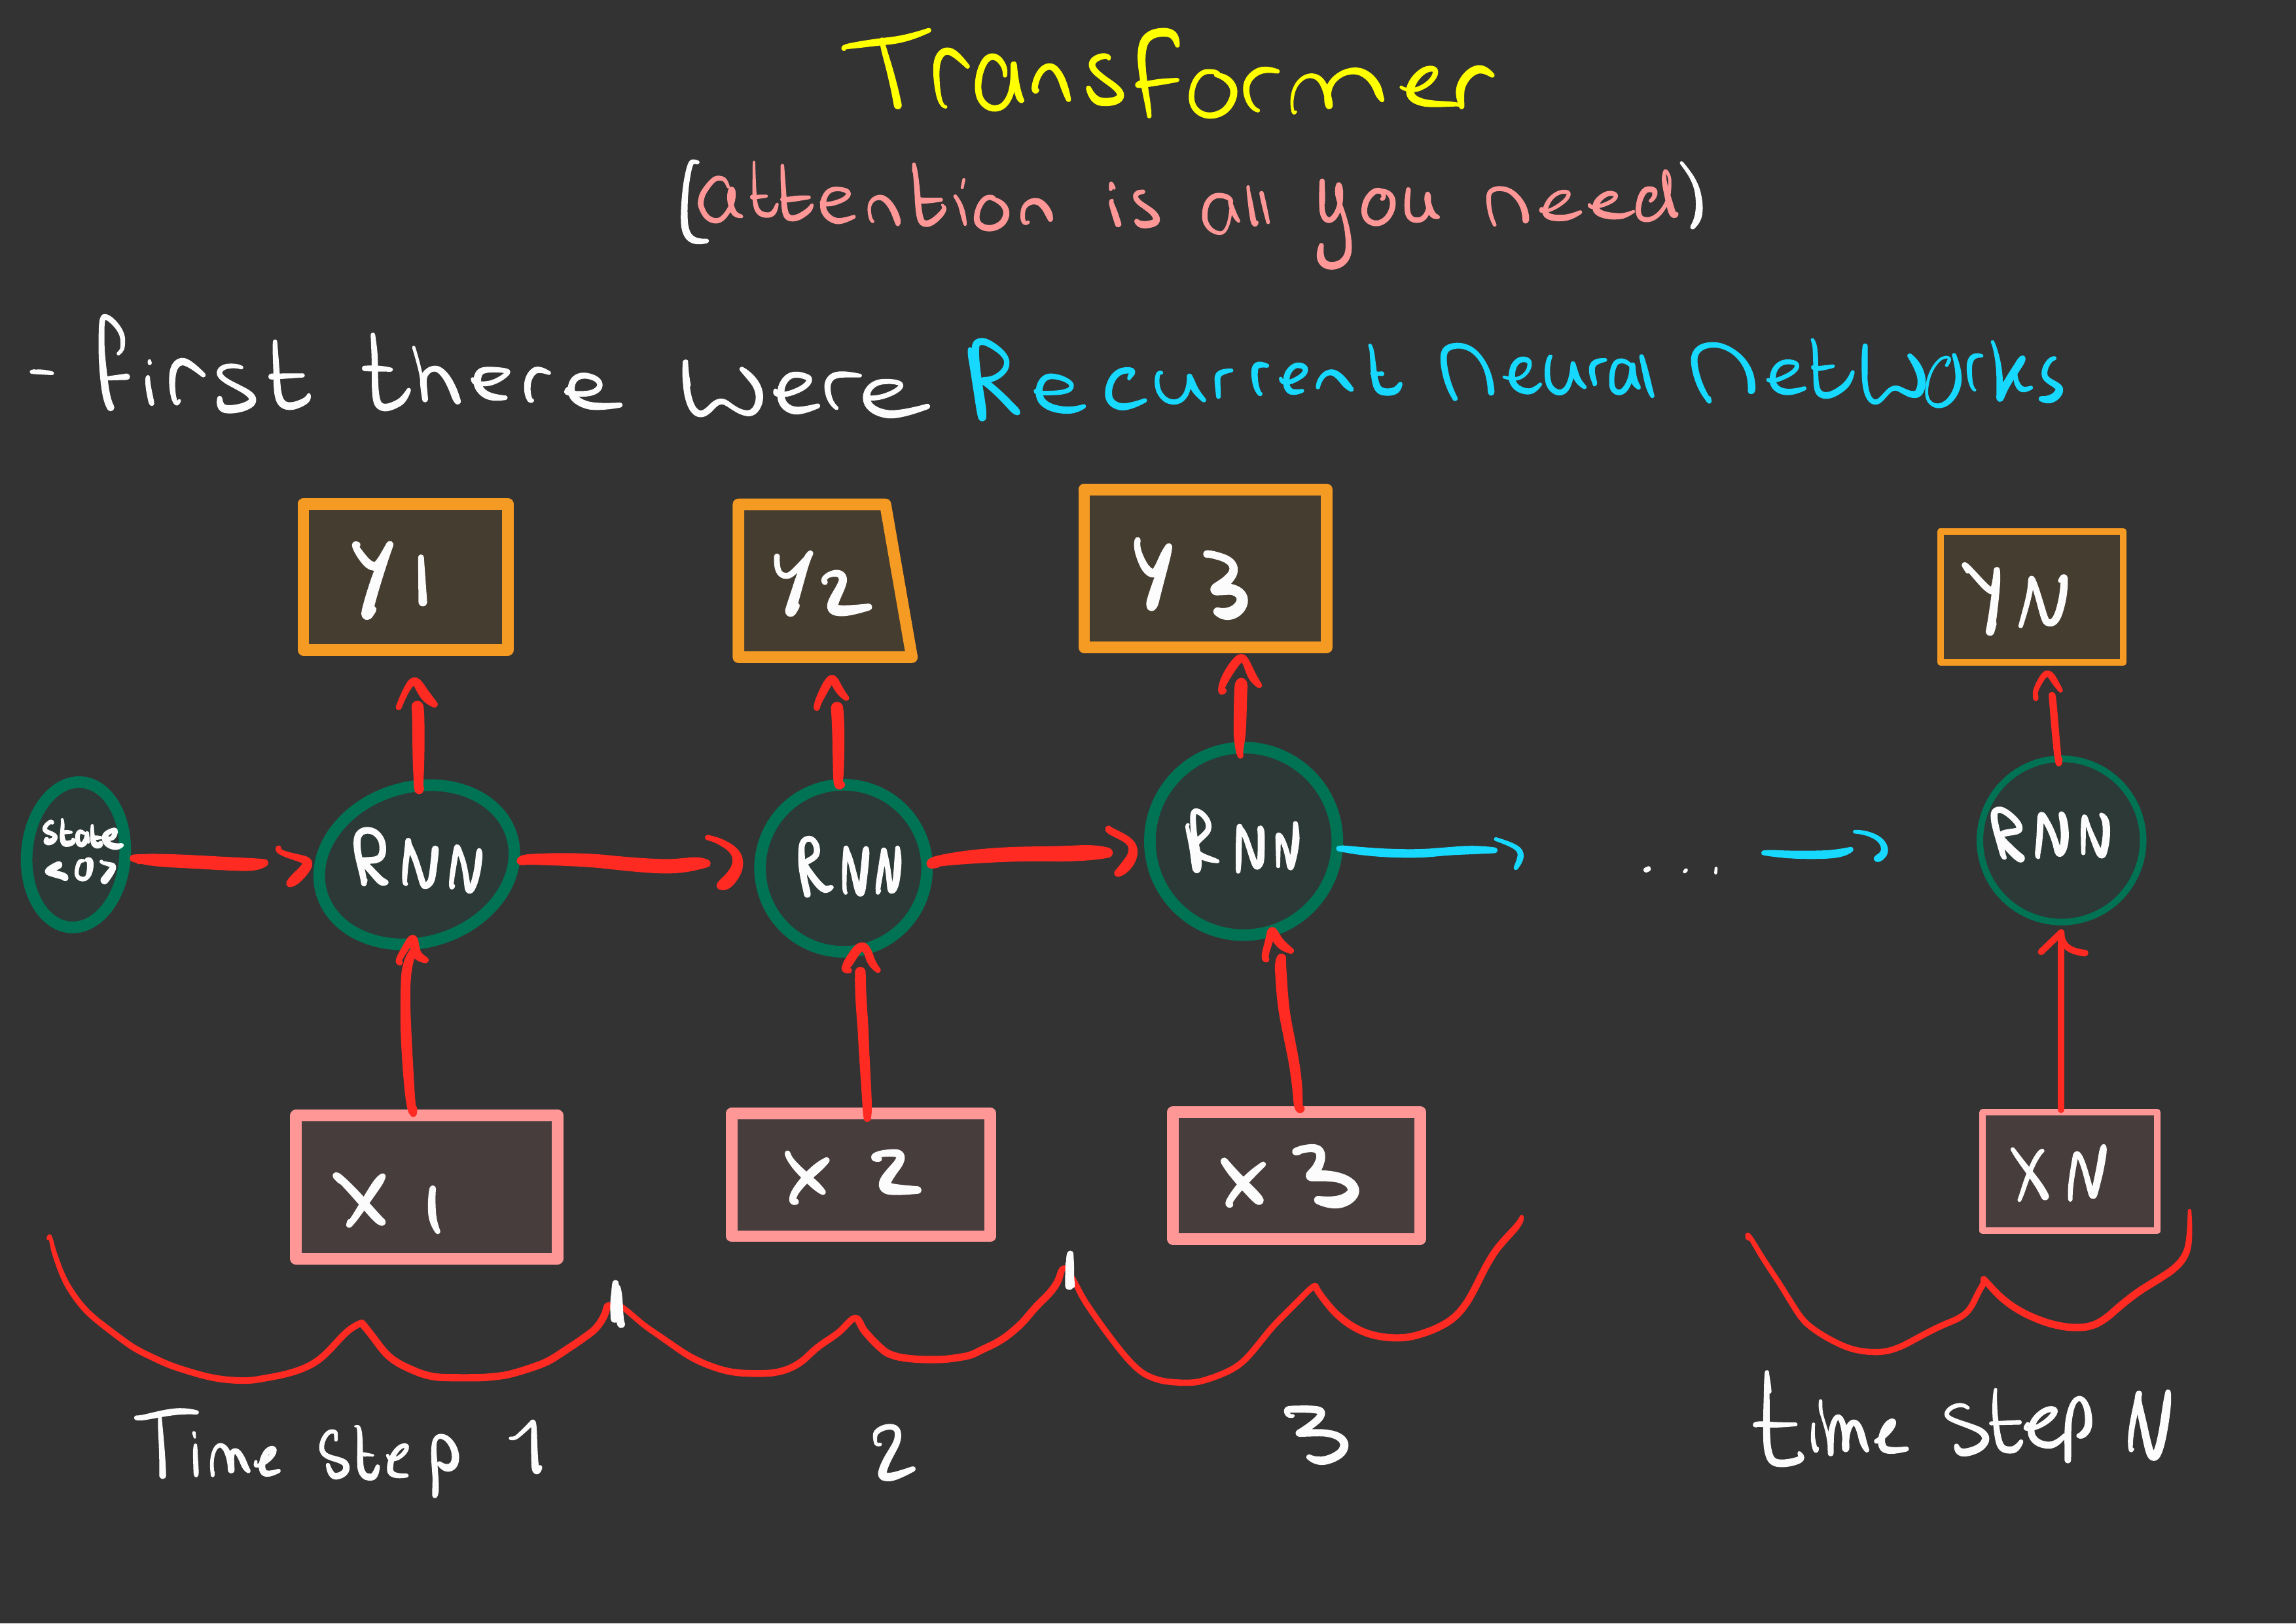 Transformer
(attention is all you need)
- first there were Recurrent neural networks
Y1 Y2 Y3 YN
state <0> RNN RNN RNN ... RNN
X1 X2 X3 XN
Time step 1 2 3 time step N